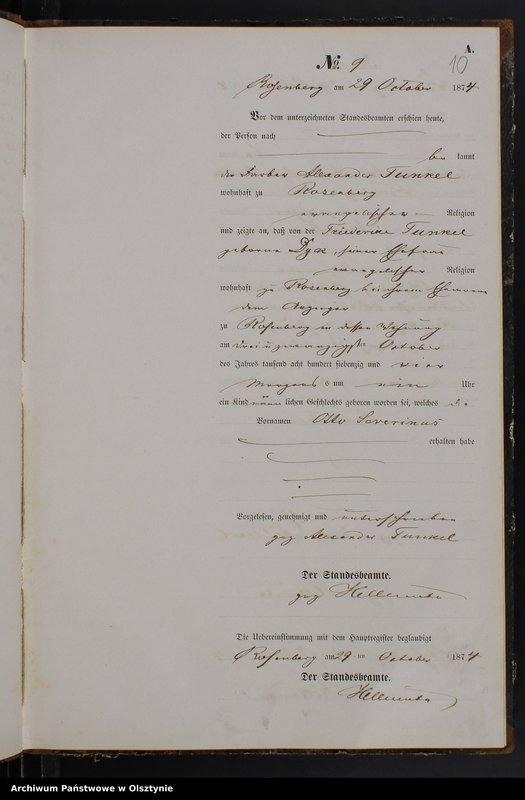 A.
10
No. 9
Rosenberg am 29 October 1874
Vor dem unterzeichneten Standesbeamten erschien heute,
der Person nach
be kannt
der Färber Alexander Tunkel
wohnhaft zu Rosenberg
evangelischer Religion
und zeigte an, daß von der Friederike Tunkel
geborene Dyck, seiner Ehefrau
evangelischer Religion
wohnhaft zu Rosenberg bei ihrem Ehemanne
dem Anzeiger
zu Rosenberg in dessen Wohnung
am drei u zwanzigsten October
des Jahres tausend acht hundert siebenzig und vier
Morgens um ein Uhr
ein Kind männ lichen Geschlechts geboren worden sei, welches die
Vornamen Otto Severinus
erhalten habe
Vorgelesen, genehmigt und unterschrieben
gez Alexander Tunkel
Der Standesbeamte.
gez
Die Uebereinstimmung mit dem Hauptregister beglaubigt
Rosenberg am 29 ten October 1874
Der Standesbeamte.
Archiwum Państwowe w Olsztynie